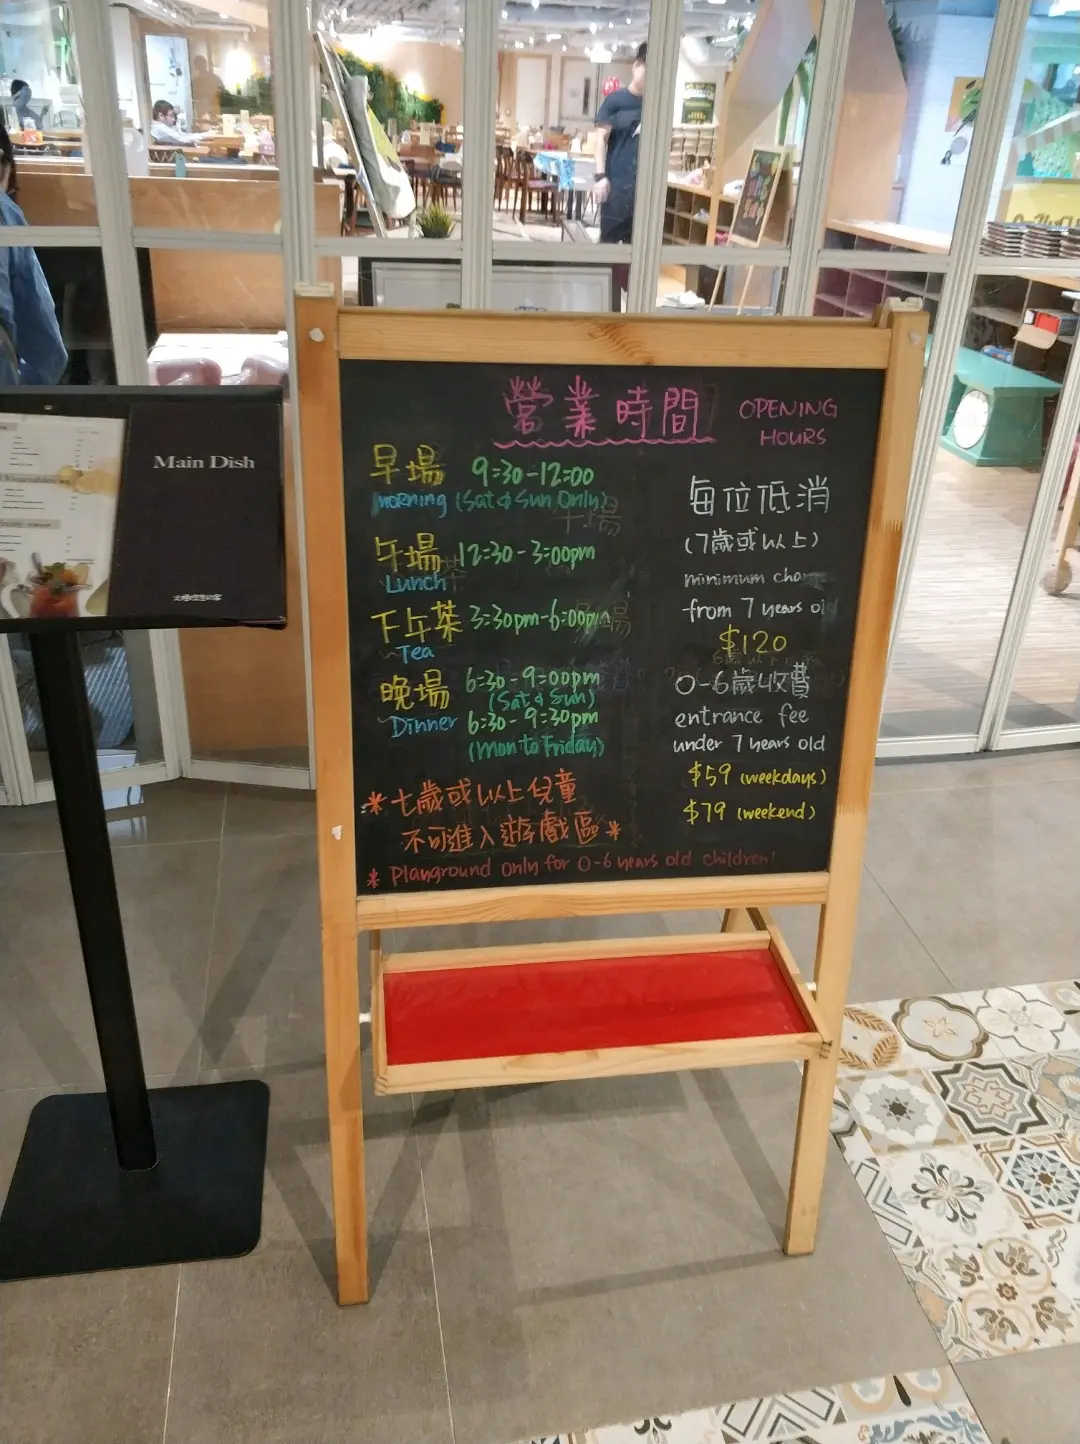 營業時間 OPENING HOURS
早場 9:30-12:00
morning (Sat & Sun Only)
午場 12:30-3:00pm
Lunch
下午茶 3:30pm-6:00pm
Tea
晚場 6:30-9:00pm
(Sat & Sun)
Dinner 6:30-9:30pm
(Mon to Friday)
*七歲或以上兒童
不可進入遊戲區*
* Playground only for 0-6 years old children!
每位低消
(7歲或以上)
minimum
from 7 years old
$120
0-6歲收費
entrance fee
under 7 years old
$59 (weekdays)
$79 (weekend)
Main Dish